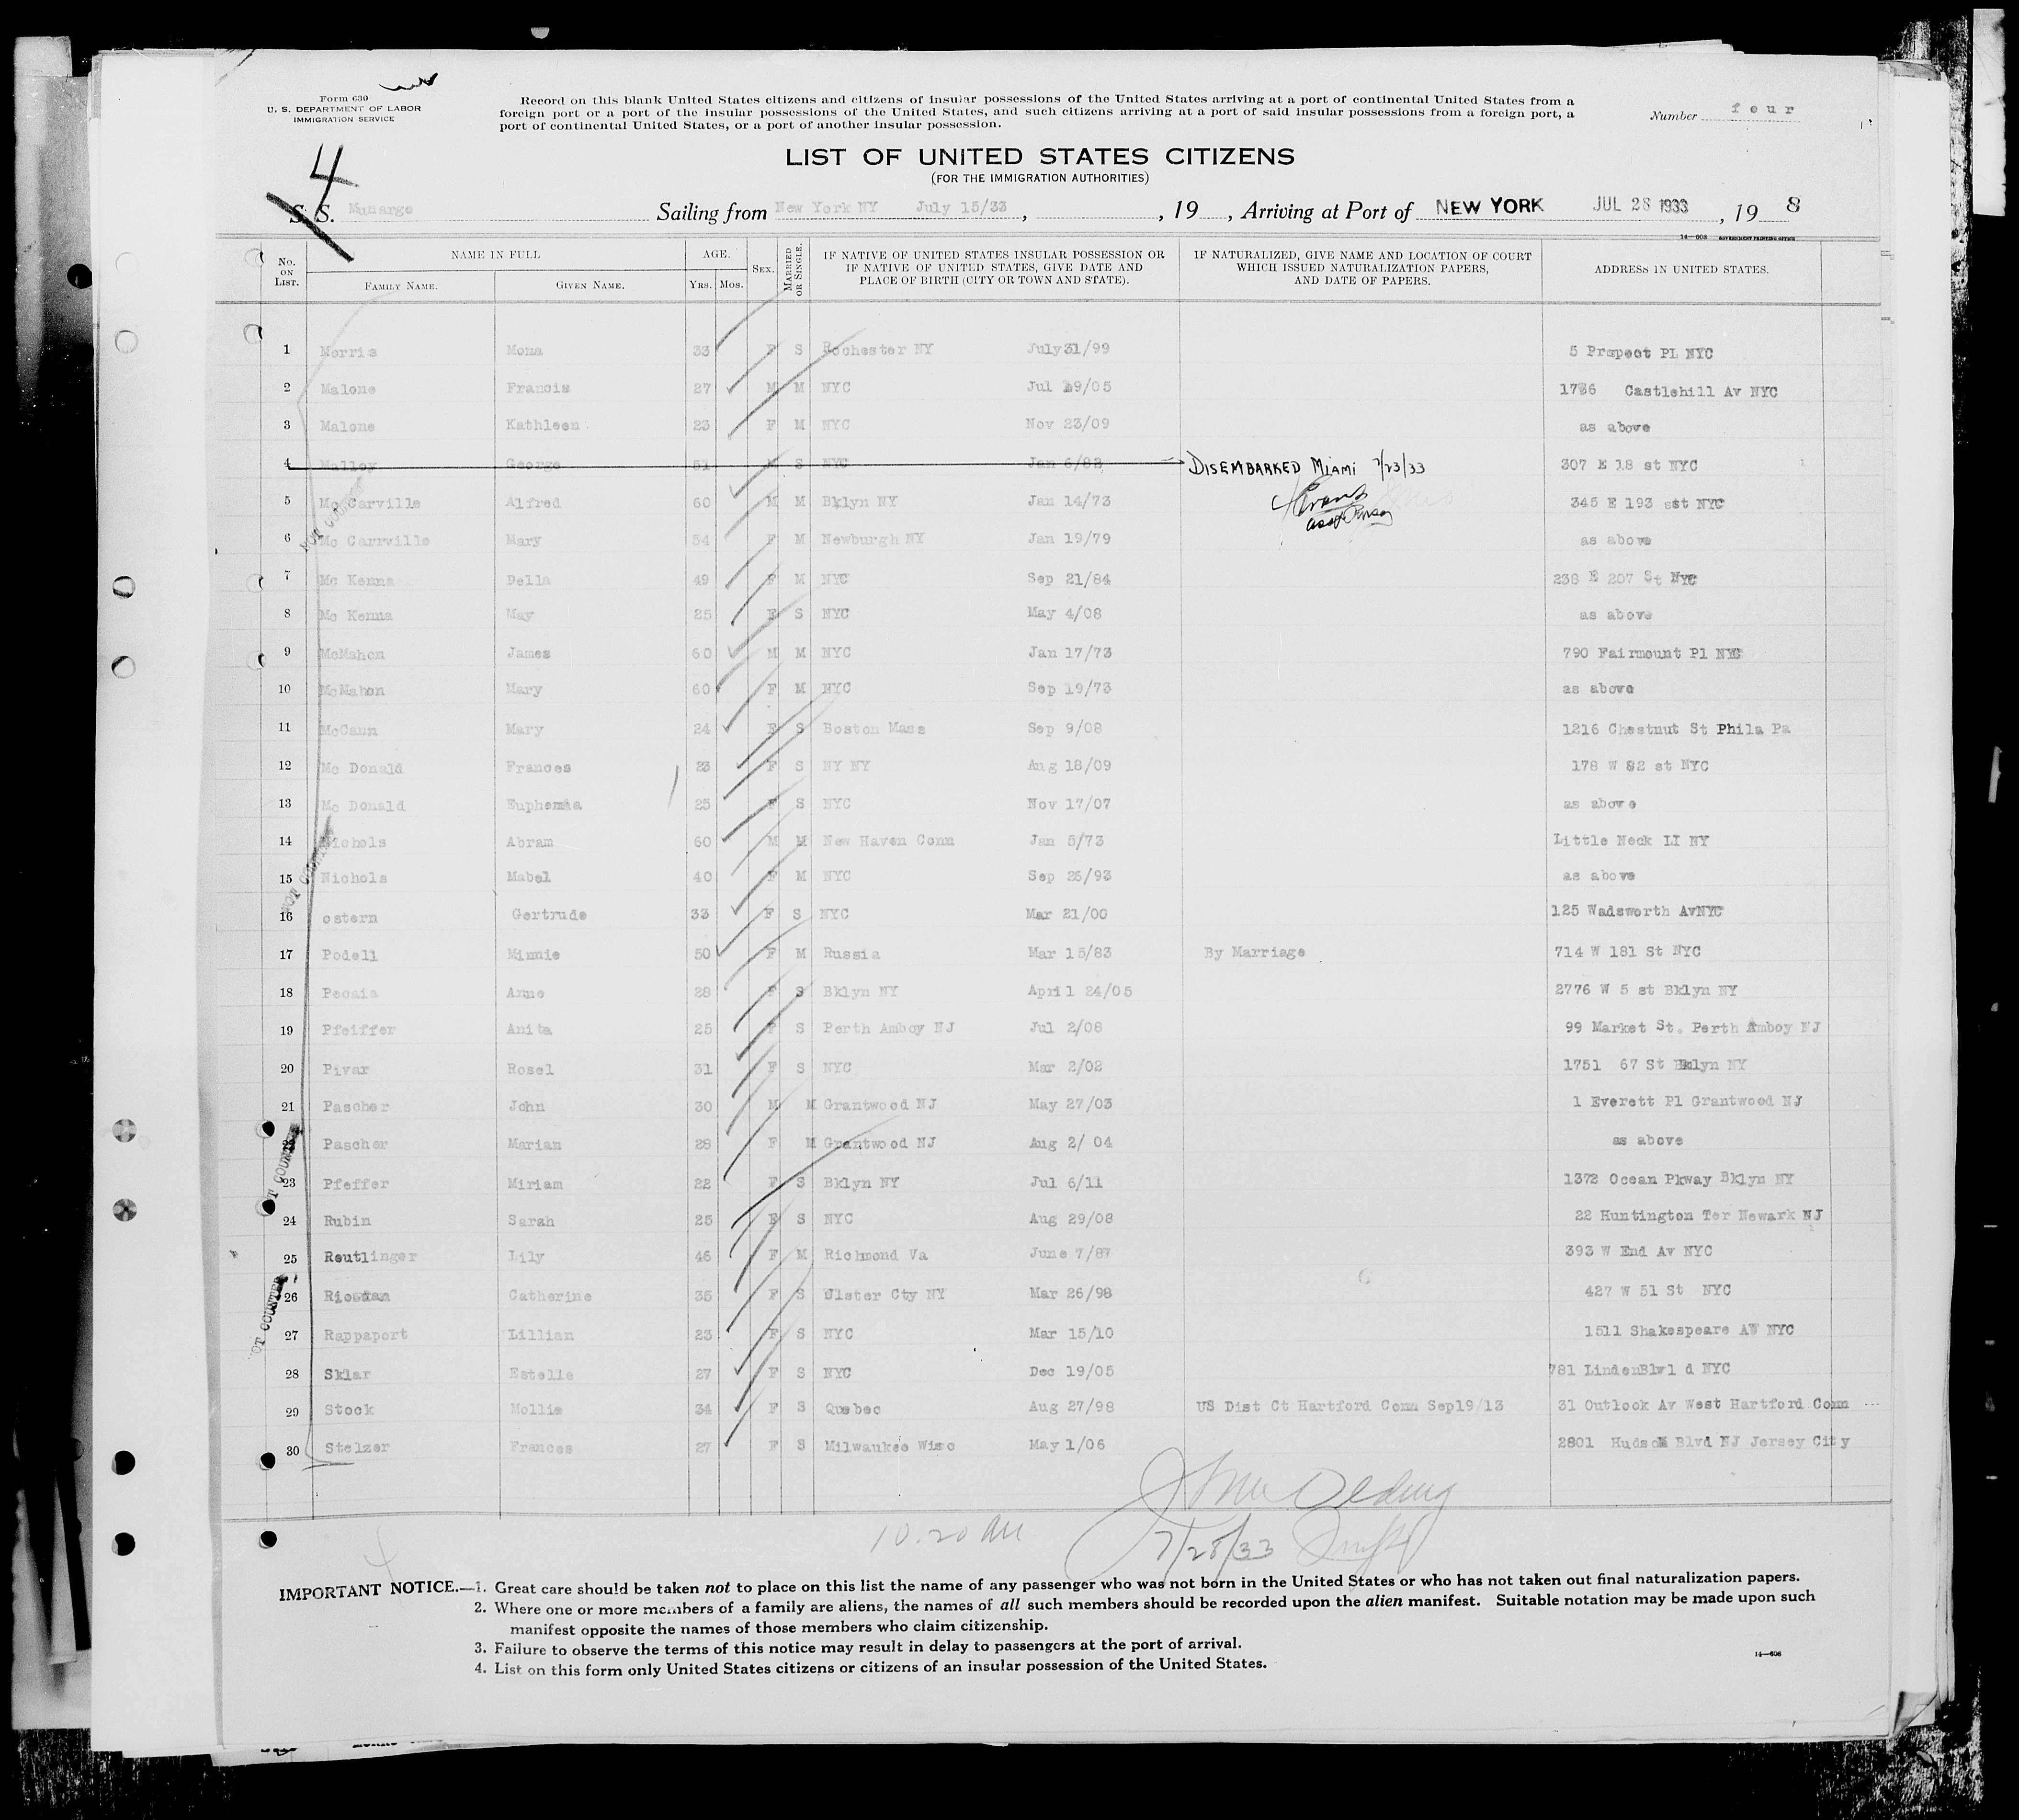 Form 630
U. S. DEPARTMENT OF LABOR
IMMIGRATION SERVICE
Record on this blank United States citizens and citizens of insular possessions of the United States arriving at a port of continental United States from a
foreign port or a port of the insular possessions of the United States, and such citizens arriving at a port of said insular possessions from a foreign port, a
port of continental United States, or a port of another insular possession.
Number four
4
LIST OF UNITED STATES CITIZENS
(FOR THE IMMIGRATION AUTHORITIES)
S. S. Munargo Sailing from New York NY July 15/33, , 19 , Arriving at Port of NEW YORK JUL 28 1933, 19 8
14—608 GOVERNMENT PRINTING OFFICE
No. ON LIST. NAME IN FULL FAMILY NAME. GIVEN NAME. AGE. YRS. MOS. SEX. MARRIED OR SINGLE. IF NATIVE OF UNITED STATES INSULAR POSSESSION OR IF NATIVE OF UNITED STATES, GIVE DATE AND PLACE OF BIRTH (CITY OR TOWN AND STATE). IF NATURALIZED, GIVE NAME AND LOCATION OF COURT WHICH ISSUED NATURALIZATION PAPERS, AND DATE OF PAPERS. ADDRESS IN UNITED STATES.
1 Morris Mona 33 F S Rochester NY July 31/99 5 Prspect PL NYC
2 Malone Francis 27 M M NYC Jul 29/05 1786 Castlehill Av NYC
3 Malone Kathleen 23 F M NYC Nov 23/09 as above
4 Malloy George 51 M S NYC Jan 6/82 DISEMBARKED MIAMI 7/23/33 307 E 18 st NYC
5 Mc Carville Alfred 60 M M Bklyn NY Jan 14/73 345 E 193 sst NYC
6 Mc Carrville Mary 54 F M Newburgh NY Jan 19/79 as above
7 Mc Kenna Della 49 F M NYC Sep 21/84 238 E 207 St NYC
8 Mc Kenna May 25 F S NYC May 4/08 as above
9 McMahon James 60 M M NYC Jan 17/73 790 Fairmount Pl NYC
10 McMahon Mary 60 F M NYC Sep 19/73 as above
11 McCann Mary 24 F S Boston Mass Sep 9/08 1216 Chestnut St Phila Pa
12 Mc Donald Frances 23 F S NY NY Aug 18/09 178 W 82 st NYC
13 Mc Donald Euphemia 25 F S NYC Nov 17/07 as above
14 Nichols Abram 60 M M New Haven Conn Jan 5/73 Little Neck LI NY
15 Nichols Mabel 40 F M NYC Sep 25/93 as above
16 ostern Gertrude 33 F S NYC Mar 21/00 125 Wadsworth AvNYC
17 Podell Minnie 50 F M Russia Mar 15/83 By Marriage 714 W 181 St NYC
18 Pecaia Anne 28 F S Bklyn NY April 24/05 2776 W 5 st Bklyn NY
19 Pfeiffer Anita 25 F S Perth Amboy NJ Jul 2/08 99 Market St. Perth Amboy NJ
20 Pivar Rosel 31 F S NYC Mar 2/02 1751 67 St Bklyn NY
21 Pascher John 30 M M Grantwood NJ May 27/03 1 Everett Pl Grantwood NJ
22 Pascher Marian 28 F M Grantwood NJ Aug 2/ 04 as above
23 Pfeffer Miriam 22 F S Bklyn NY Jul 6/11 1372 Ocean Pkway Bklyn NY
24 Rubin Sarah 25 F S NYC Aug 29/08 22 Huntington Ter Newark NJ
25 Reutlinger Lily 46 F M Richmond Va June 7/87 393 W End Av NYC
26 Riordan Catherine 35 F S Ulster Cty NY Mar 26/98 427 W 51 St NYC
27 Rappaport Lillian 23 F S NYC Mar 15/10 1511 Shakespeare AV NYC
28 Sklar Estelle 27 F S NYC Dec 19/05 781 LindenBlvl d NYC
29 Stock Mollie 34 F S Quebec Aug 27/98 US Dist Ct Hartford Conn Sep19/13 31 Outlook Av West Hartford Conn
30 Stelzer Frances 27 F S Milwaukee Wisc May 1/06 2801 Hudson Blvd NJ Jersey City
10.20 AM
7/28/33
IMPORTANT NOTICE.—1. Great care should be taken not to place on this list the name of any passenger who was not born in the United States or who has not taken out final naturalization papers.
2. Where one or more members of a family are aliens, the names of all such members should be recorded upon the alien manifest. Suitable notation may be made upon such
manifest opposite the names of those members who claim citizenship.
3. Failure to observe the terms of this notice may result in delay to passengers at the port of arrival.
4. List on this form only United States citizens or citizens of an insular possession of the United States.
14—608